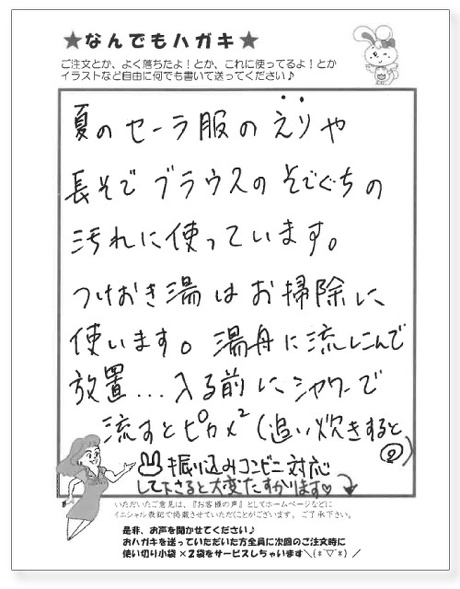 ★なんでもハガキ★
ご注文とか、よく落ちたよ!とか、これに使ってるよ!とか
イラストなど自由に何でも書いて送ってください♪
夏のセーラ服のえりや
長そでブラウスのそでぐちの
汚れに使っています。
つけおき湯はお掃除に
使います。湯舟に流しこんで
放置...入る前にシャワーで
流すとピカメ²(追い炊きすると◎)
振り込みコンビニ対応
して下さると大変たすかります♡
いただいたご意見は、『お客様の声』としてホームページなどに
イニシャル表記で掲載させていただことがございます。ご了承下さい。
是非、お声を聞かせてください♪
おハガキを送っていただいた方全員に次回のご注文時に
使い切り小袋×2袋をサービスしちゃいます＼(*ˊ▽ˋ*)／